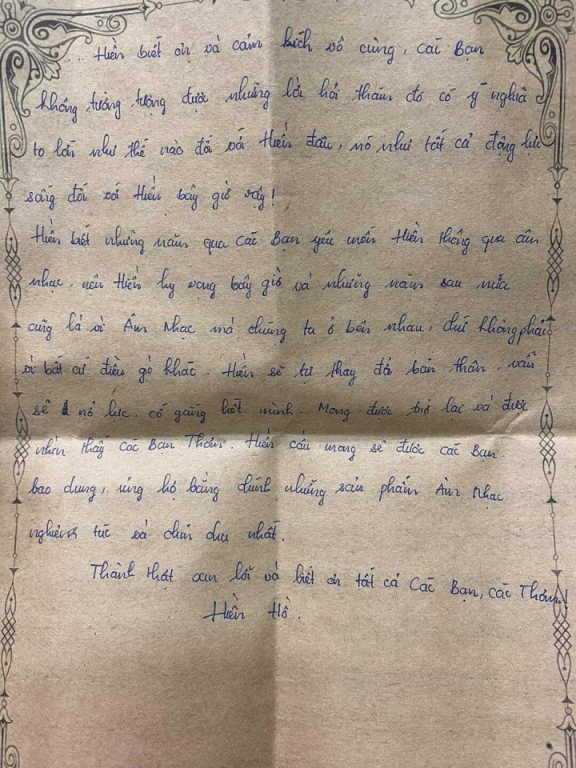 ... Hiền biết ơn và cảm kích vô cùng, Các Bạn
không tưởng tượng được những lời hỏi thăm đó có ý nghĩa
to lớn như thế nào đối với Hiền đâu, nó như tất cả động lực
sống đối với Hiền bây giờ vậy!
Hiền biết những năm qua Các Bạn yêu mến Hiền thông qua âm
nhạc, nên Hiền hy vọng bây giờ và những năm sau nữa
cũng là vì Âm Nhạc mà chúng ta ở bên nhau, chứ không phải
vì bất cứ điều gì khác. Hiền sẽ tự thay đổi bản thân, vẫn
sẽ nỗ lực, cố gắng hết mình. Mong được trở lại và được
nhìn thấy Các Bạn Thơm. Hiền cầu mong sẽ được các Bạn
bao dung, ủng hộ bằng chính những sản phẩm Âm Nhạc
nghiêm túc và chỉn chu nhất.
Thành thật xin lỗi và biết ơn tất cả Các Bạn, các Thơm!
Hiền Hồ.